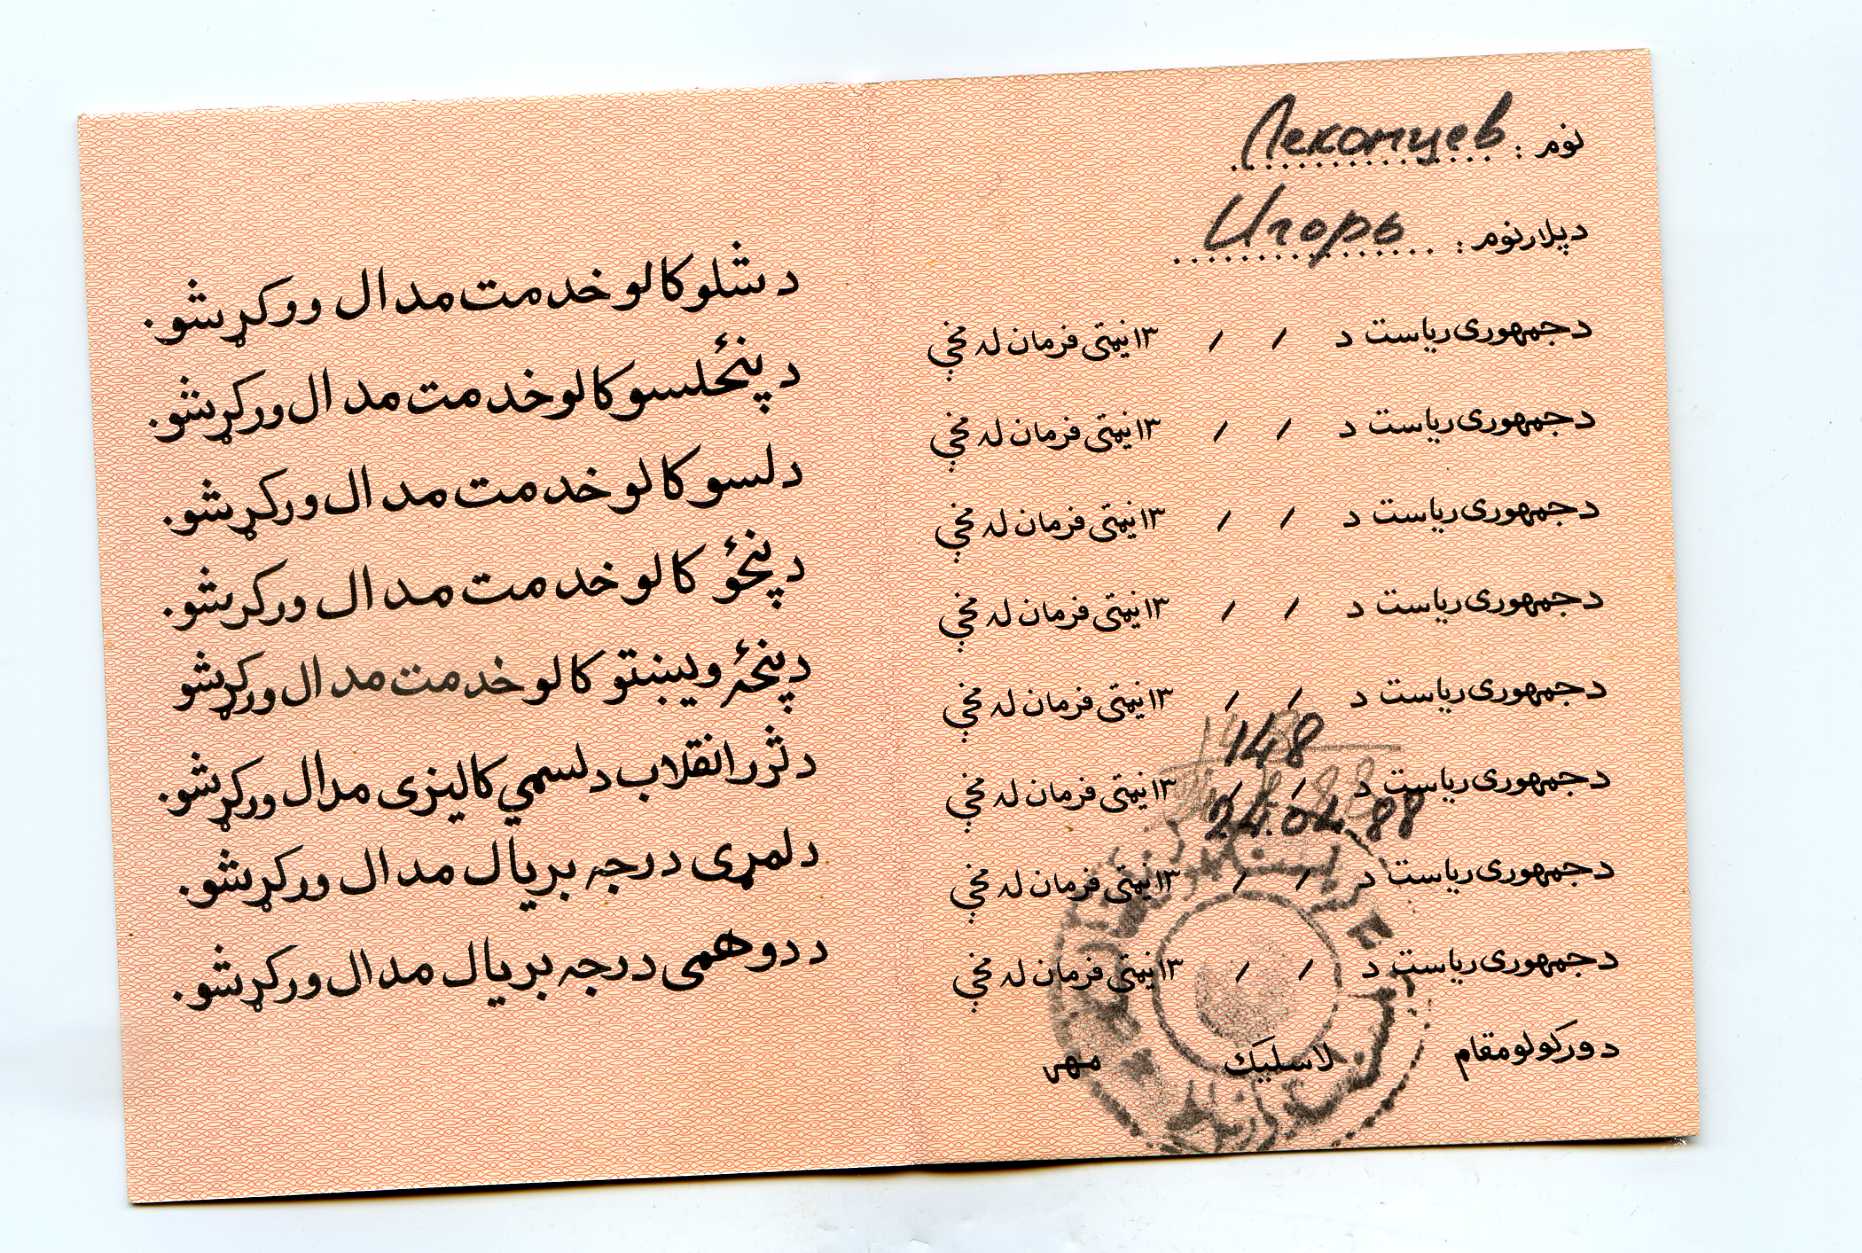 نوم : Лекомцев
د پلار نوم : Игорь
د جمهوری ریاست د / / ۱۳ نیټی فرمان له مخې د شلو کالو خدمت مدال ورکړ شو.
د جمهوری ریاست د / / ۱۳ نیټی فرمان له مخې د پنځلسو کالو خدمت مدال ورکړ شو.
د جمهوری ریاست د / / ۱۳ نیټی فرمان له مخې د لسو کالو خدمت مدال ورکړ شو.
د جمهوری ریاست د / / ۱۳ نیټی فرمان له مخې د پنځو کالو خدمت مدال ورکړ شو.
د جمهوری ریاست د / / ۱۳ نیټی فرمان له مخې د پنځه ویښتو کالو خدمت مدال ورکړ شو
148
د جمهوری ریاست د / / ۱۳ نیټی فرمان له مخې د ثور انقلاب د لسمې کالیزی مدال ورکړ شو.
24.04.88
د جمهوری ریاست د / / ۱۳ نیټی فرمان له مخې د لمړی درجه بریال مدال ورکړ شو.
د جمهوری ریاست د / / ۱۳ نیټی فرمان له مخې د دوهمی درجه بریال مدال ورکړ شو.
د ورکولو مقام لاسلیک مهر